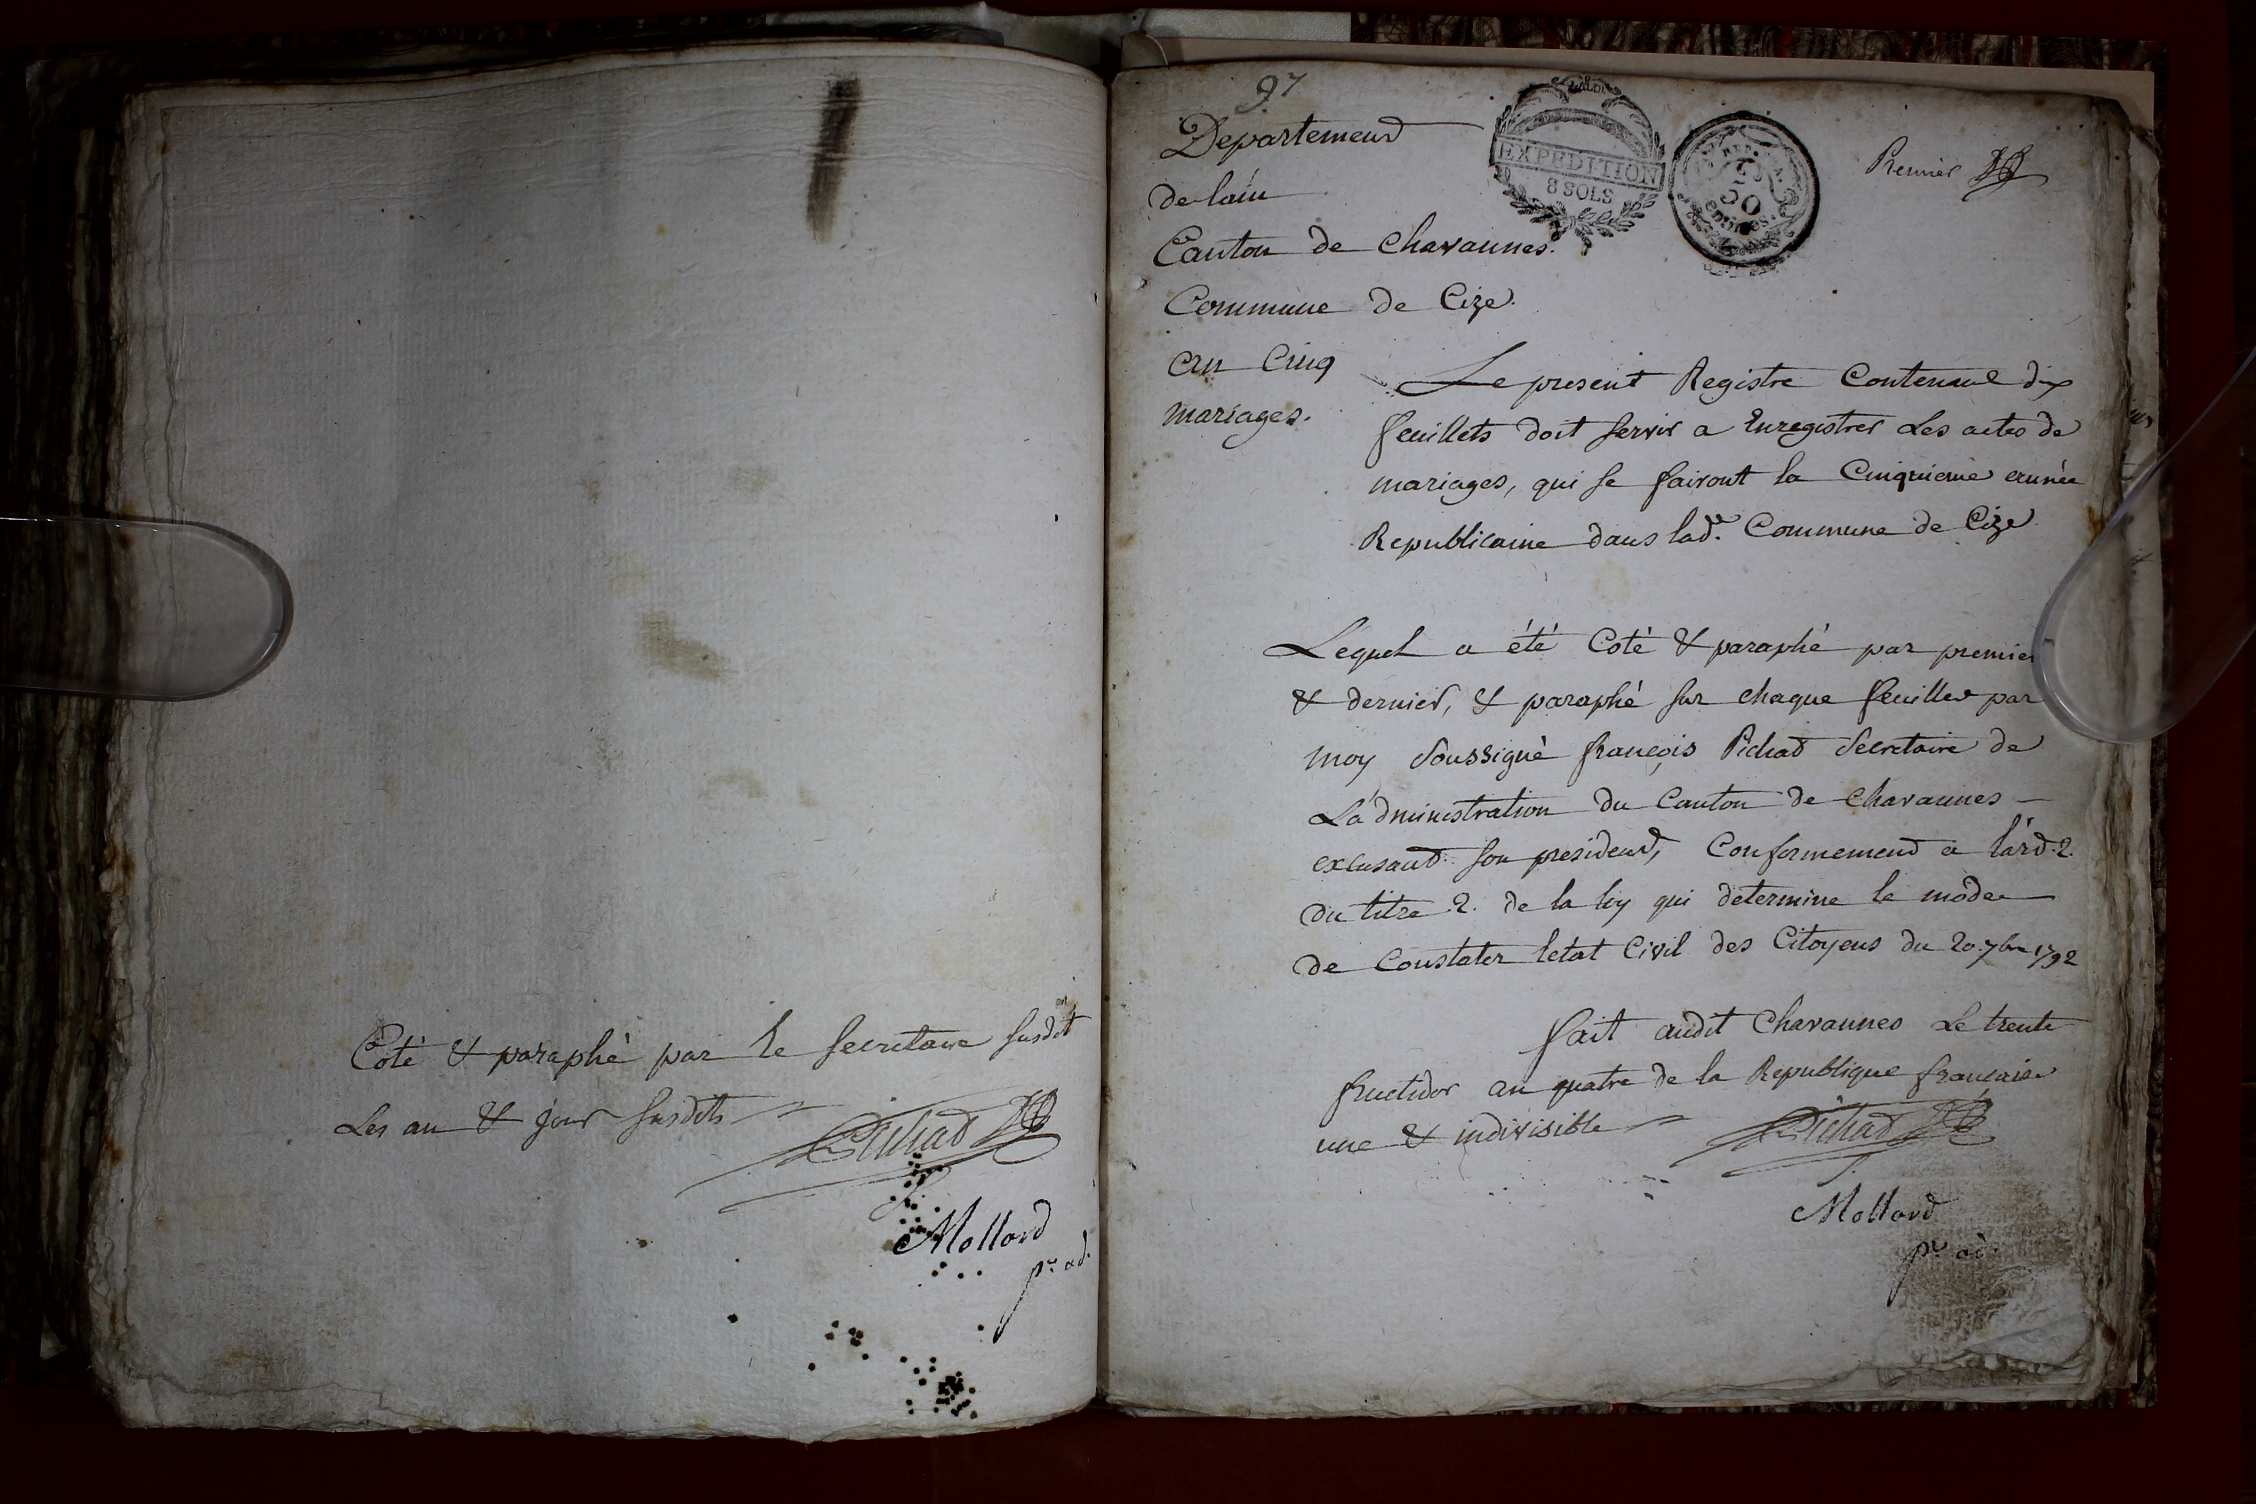 Coté & paraphé par le secretaire susdit
Les an & jour susdits Pichad
Mollard
pr. ad.
97
Departement
de lain
Canton de Chavannes.
Commune de Cize.
an Cinq
mariages.
EXPEDITION
8 SOLS
REP.
50
centimes.
Premier
Le present Registre Contenant dix
feuillets doit servir a Enregistrer Les actes de
mariages, qui se fairont la Cinquieme année
Republicaine dans lad.e Commune de Cize
Lequel a été Coté & paraphé par premier
& dernier, & paraphé sur chaque feuillet par
moy soussigné françois Pichad Secretaire de
L'adminstration du Canton de Chavannes
excusant son president, Conformement a l'ard. 2.
du titre 2. de la loy qui determine le mode
de Constater letat Civil des Citoyens du 20 7bre 1792
fait audit Chavannes Le trente
fructidor an quatre de la Republique française
une & indivisible Pichad
Mollard
pr. ad.